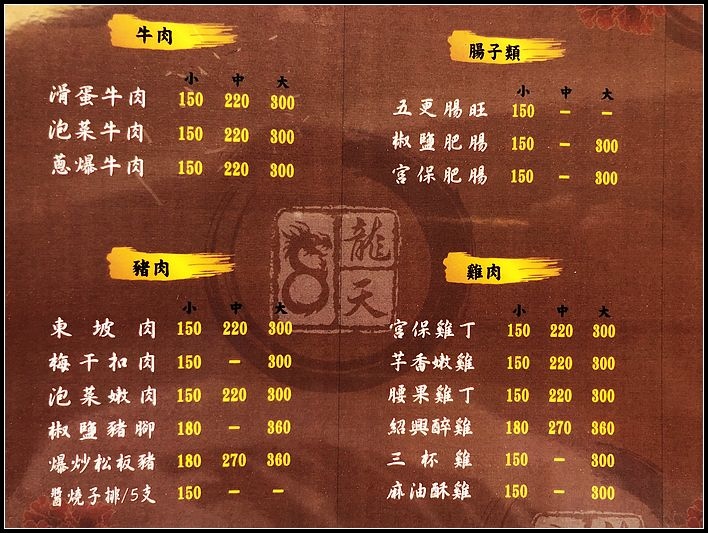 牛肉
小 中 大
滑蛋牛肉 150 220 300
泡菜牛肉 150 220 300
蔥爆牛肉 150 220 300
腸子類
小 中 大
五更腸旺 150 – –
椒鹽肥腸 150 – 300
宮保肥腸 150 – 300
龍天
豬肉
小 中 大
東坡肉 150 220 300
梅干扣肉 150 – 300
泡菜嫩肉 150 220 300
椒鹽豬腳 180 – 360
爆炒松板豬 180 270 360
醬燒子排/5支 150 – –
雞肉
小 中 大
宮保雞丁 150 220 300
芋香嫩雞 150 220 300
腰果雞丁 150 220 300
紹興醉雞 180 270 360
三杯雞 150 – 300
麻油酥雞 150 – 300